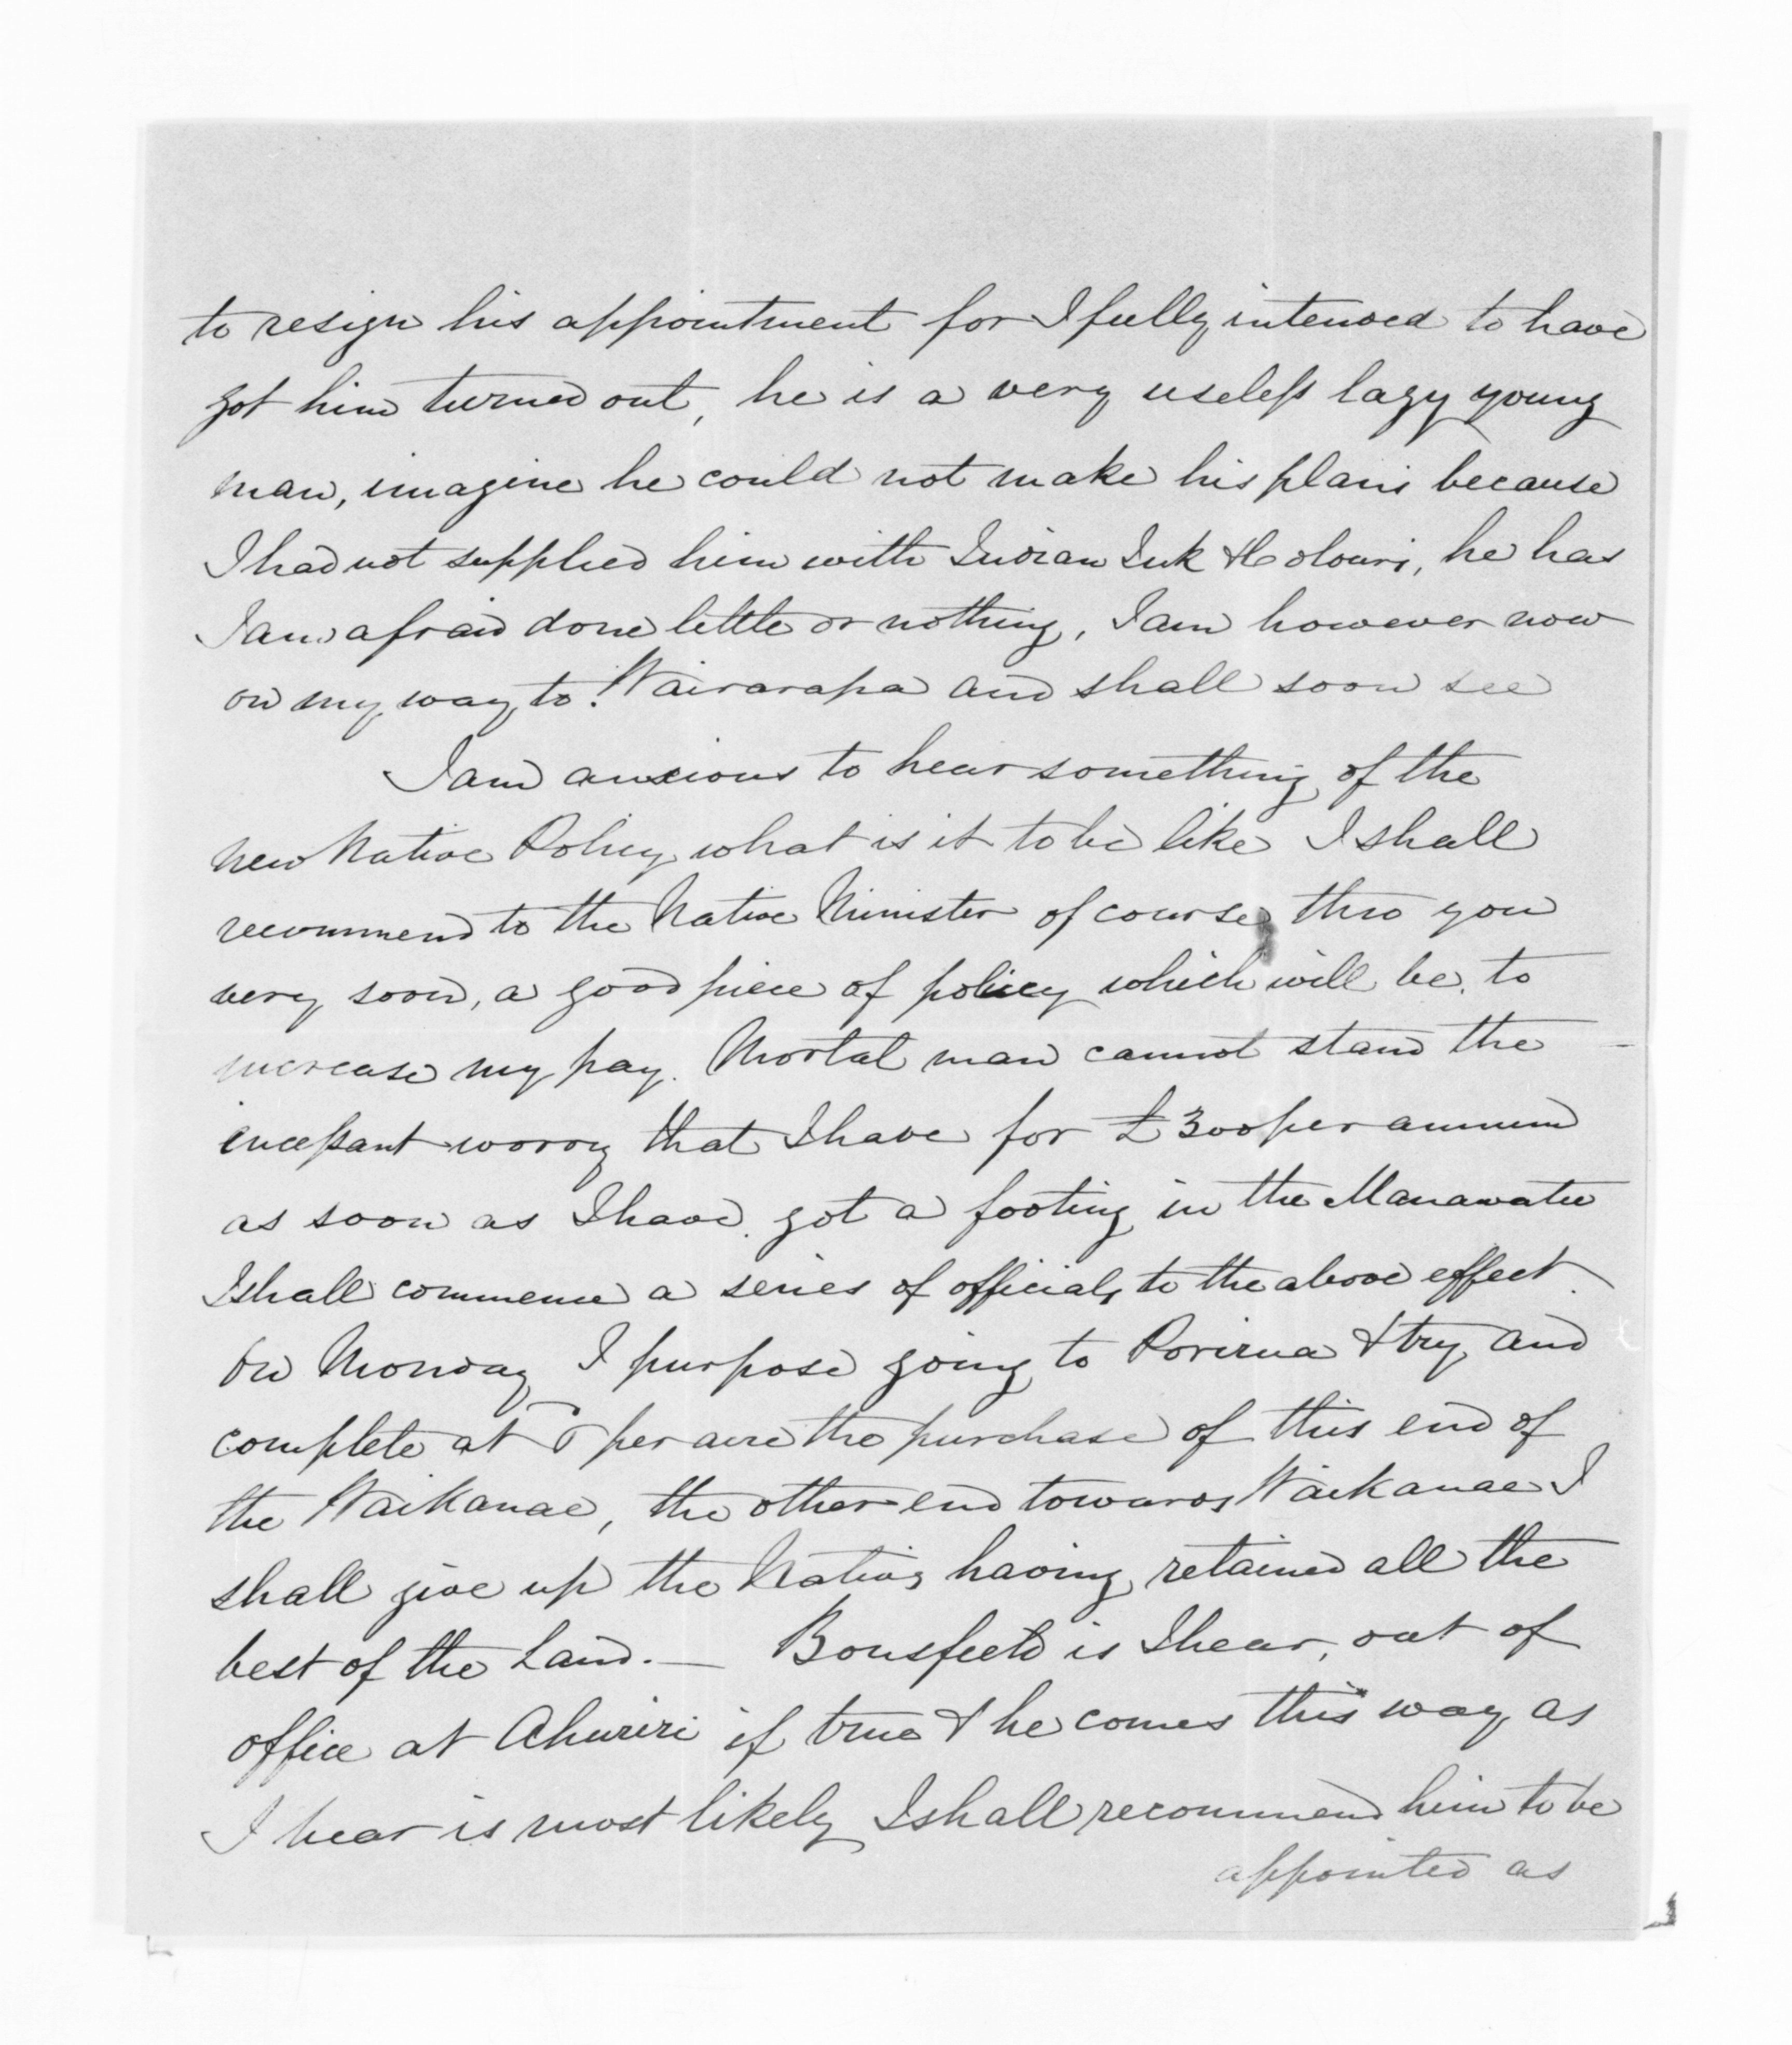 to resign his appointment for I fully intended to have
got him turned out, he is a very useless lazy young
man, imagine he could not make his plans because
I had not supplied him with Indian Ink & Colours, he has
I am afraid done little or nothing, I am however now
on my way to Wairarapa and shall soon see
I am anxious to hear something of the
new Native Policy what is it to be like I shall
recommend to the Native Minister of course thro you
very soon, a good piece of policy which will be, to
increase my pay. Mortal man cannot stand the
incessant worry that I have for £300 per annum
as soon as I have got a footing in the Manawatu
I shall commence a series of officials to the above effect.
On Monday I purpose going to Porirua & try and
complete at per acre the purchase of this end of
the Waikanae, the other end towards Waikanae I
shall give up the Natives having retained all the
best of the Land. — Bousfield is I hear, out of
office at Ahuriri if true & he comes this way as
I hear is most likely I shall recommend him to be
appointed as